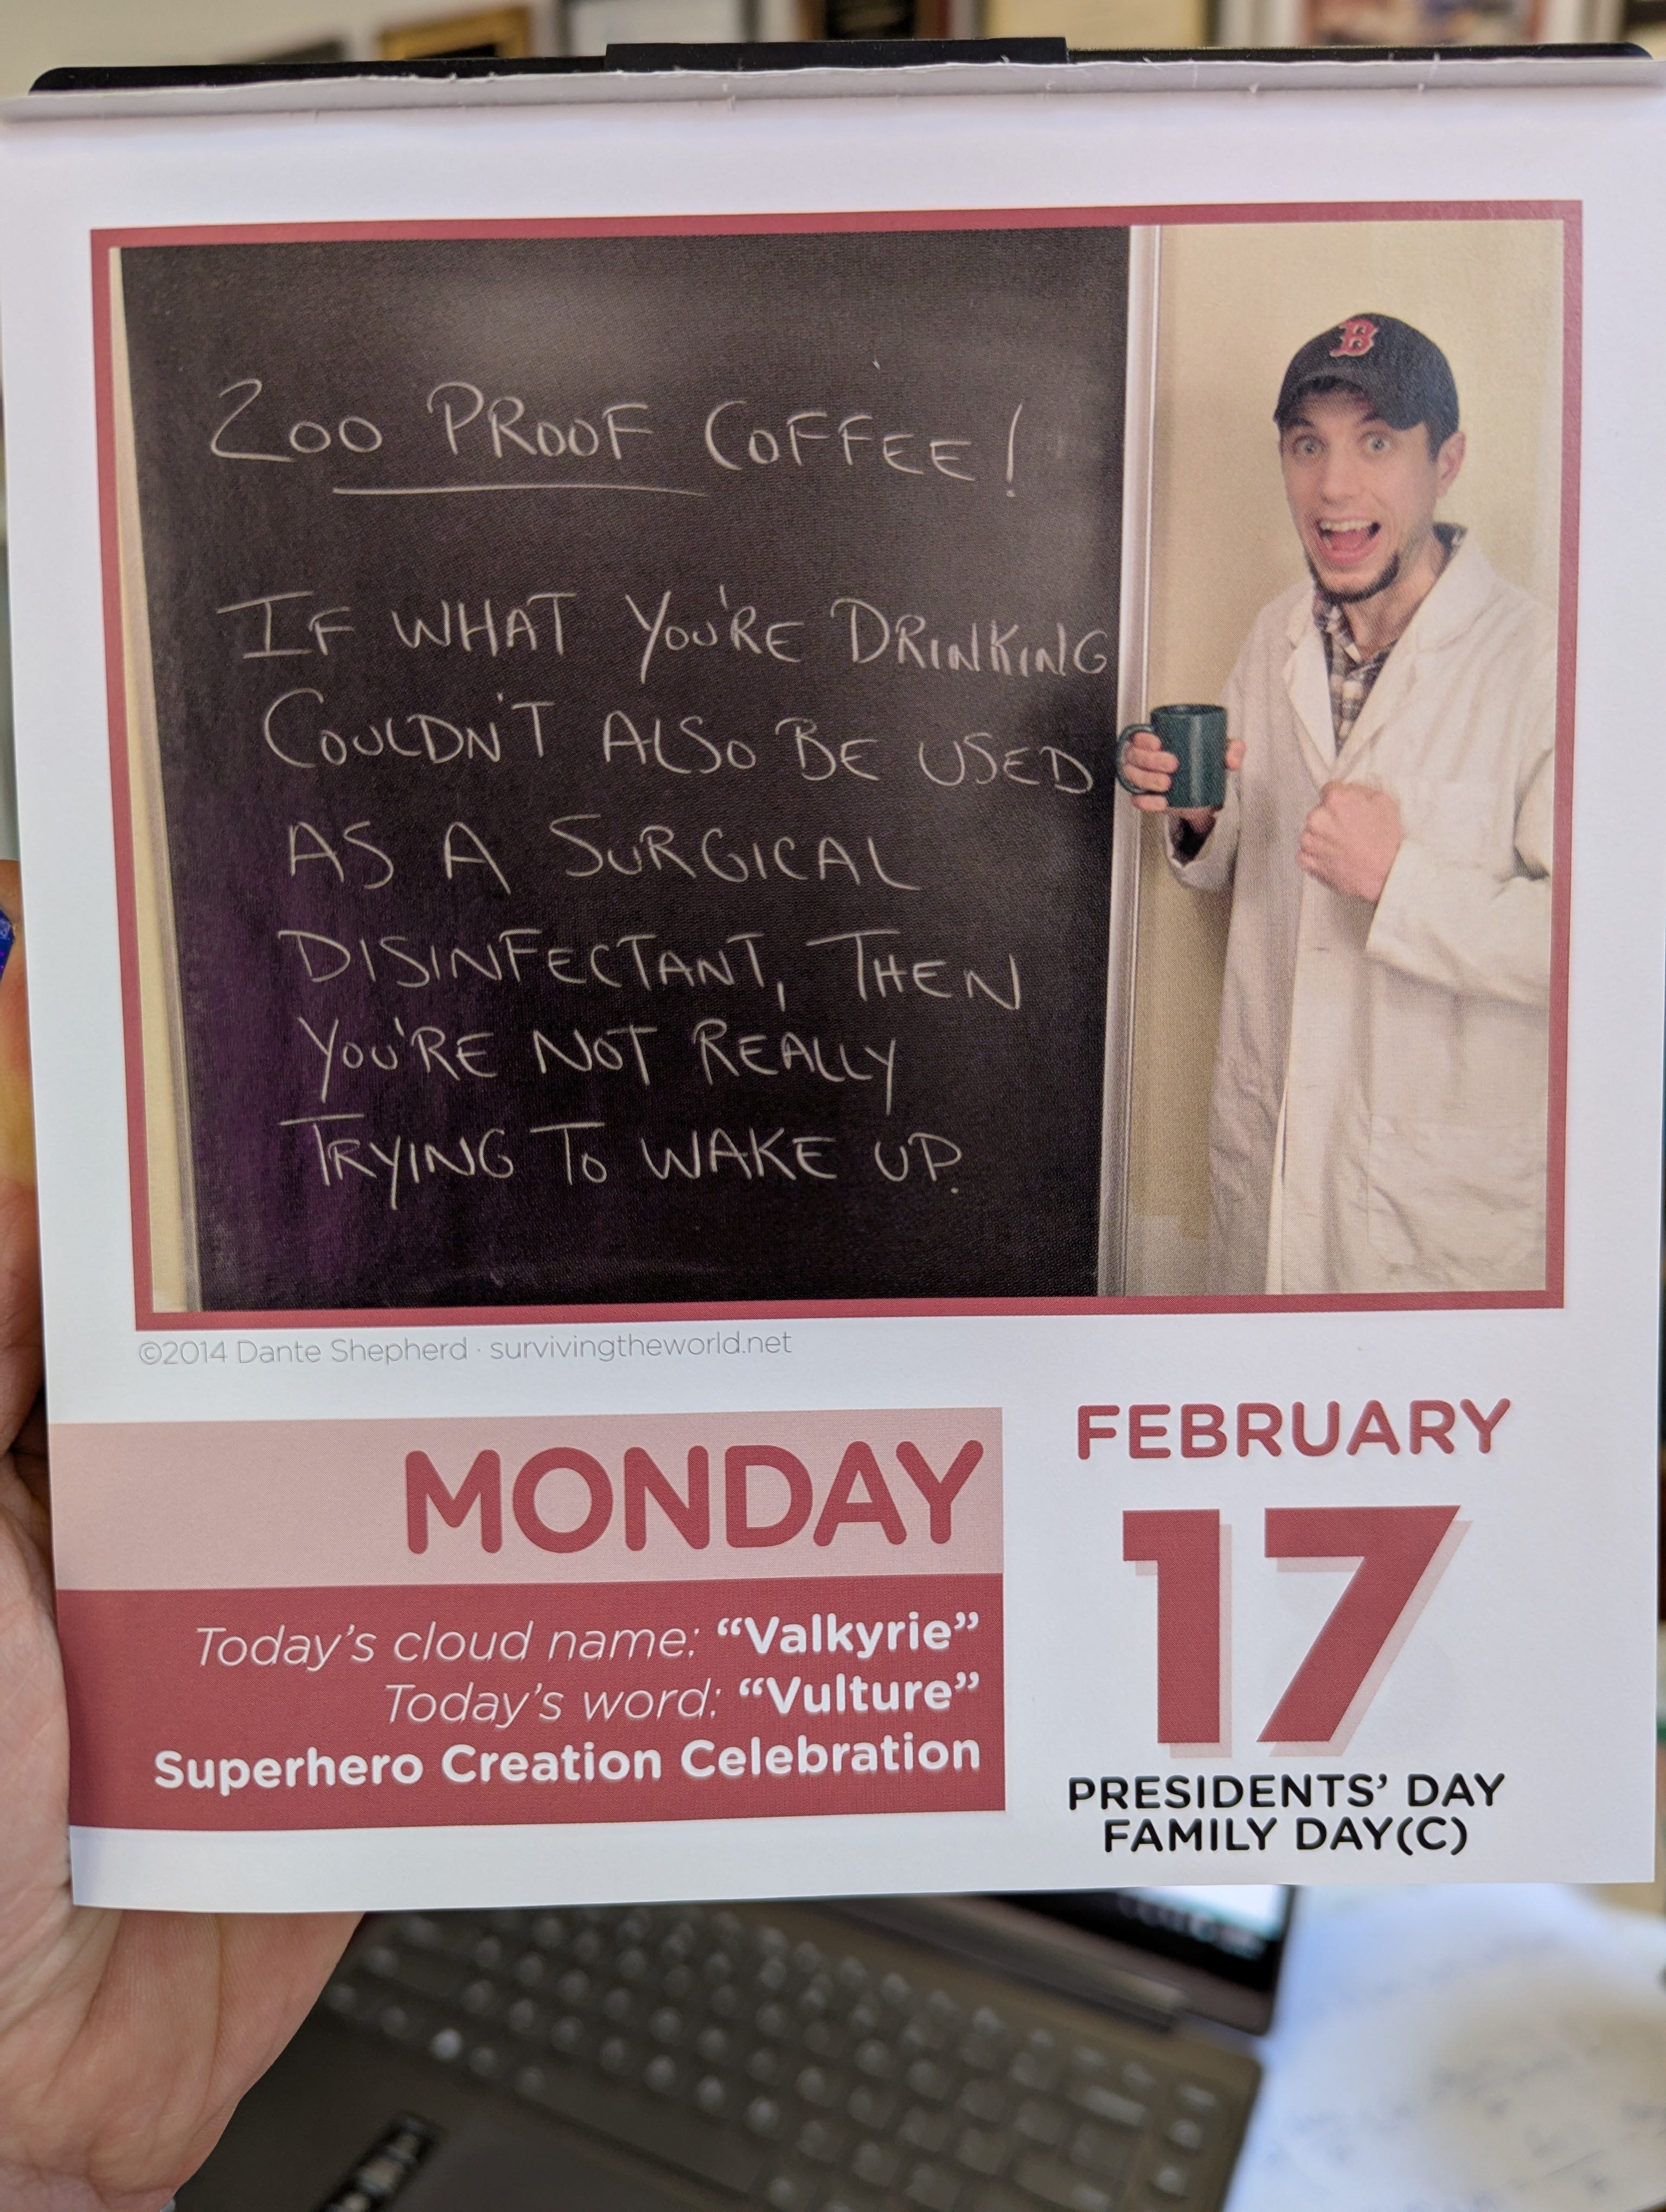 200 PROOF COFFEE!
IF WHAT YOU'RE DRINKING
COULDN'T ALSO BE USED
AS A SURGICAL
DISINFECTANT, THEN
YOU'RE NOT REALLY
TRYING TO WAKE UP.
B
©2014 Dante Shepherd · survivingtheworld.net
MONDAY
Today's cloud name: “Valkyrie”
Today's word: “Vulture”
Superhero Creation Celebration
FEBRUARY
17
PRESIDENTS’ DAY
FAMILY DAY(C)